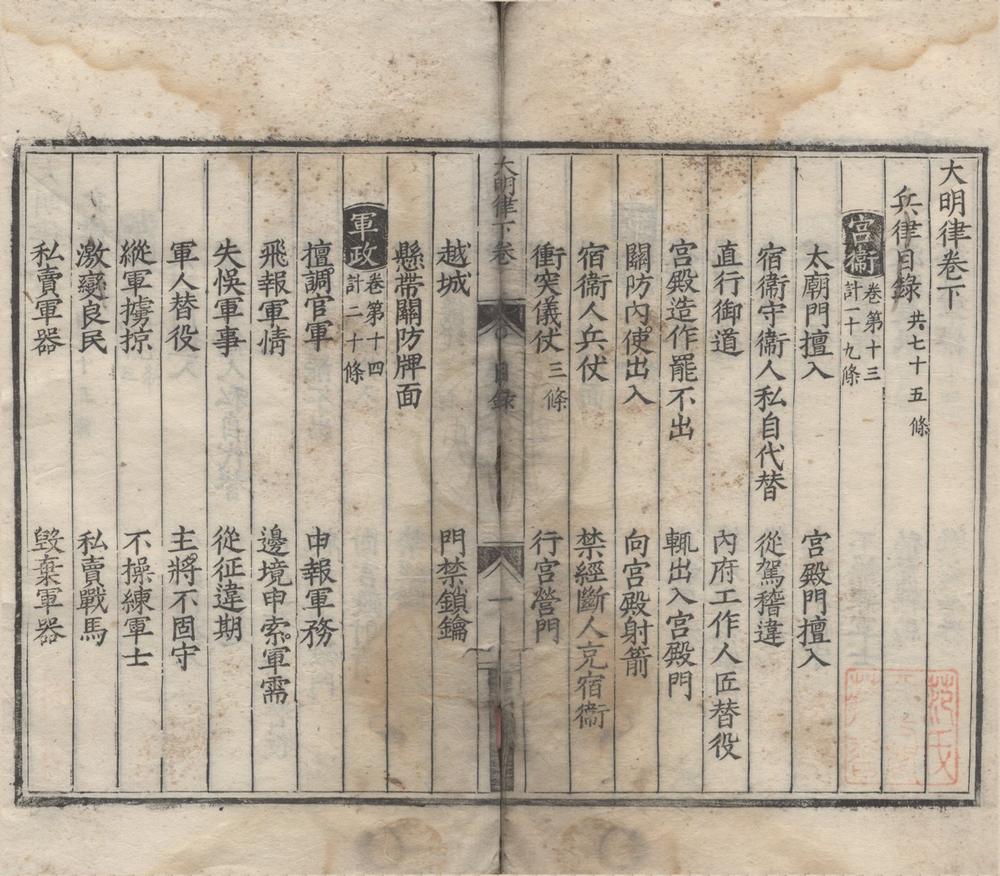 大明律卷下
兵律目録 共七十五條
宮衞 卷第十三 計一十九條
太廟門擅入 宮殿門擅入
宿衞守衞人私自代替 從駕稽違
直行御道 內府工作人匠替役
宮殿造作罷不出 輒出入宮殿門
關防內使出入 向宮殿射箭
宿衞人兵仗 禁經斷人充宿衞
衝突儀仗 三條 行宮營門
大明律下卷 目錄 一
越城 門禁鎖鑰
懸帶關防牌面
軍政 卷第十四 計二十條
擅調官軍 申報軍務
飛報軍情 邊境申索軍需
失悞軍事 從征違期
軍人替役 主將不固守
縱軍擄掠 不操練軍士
激變良民 私賣戰馬
私賣軍器 毀棄軍器